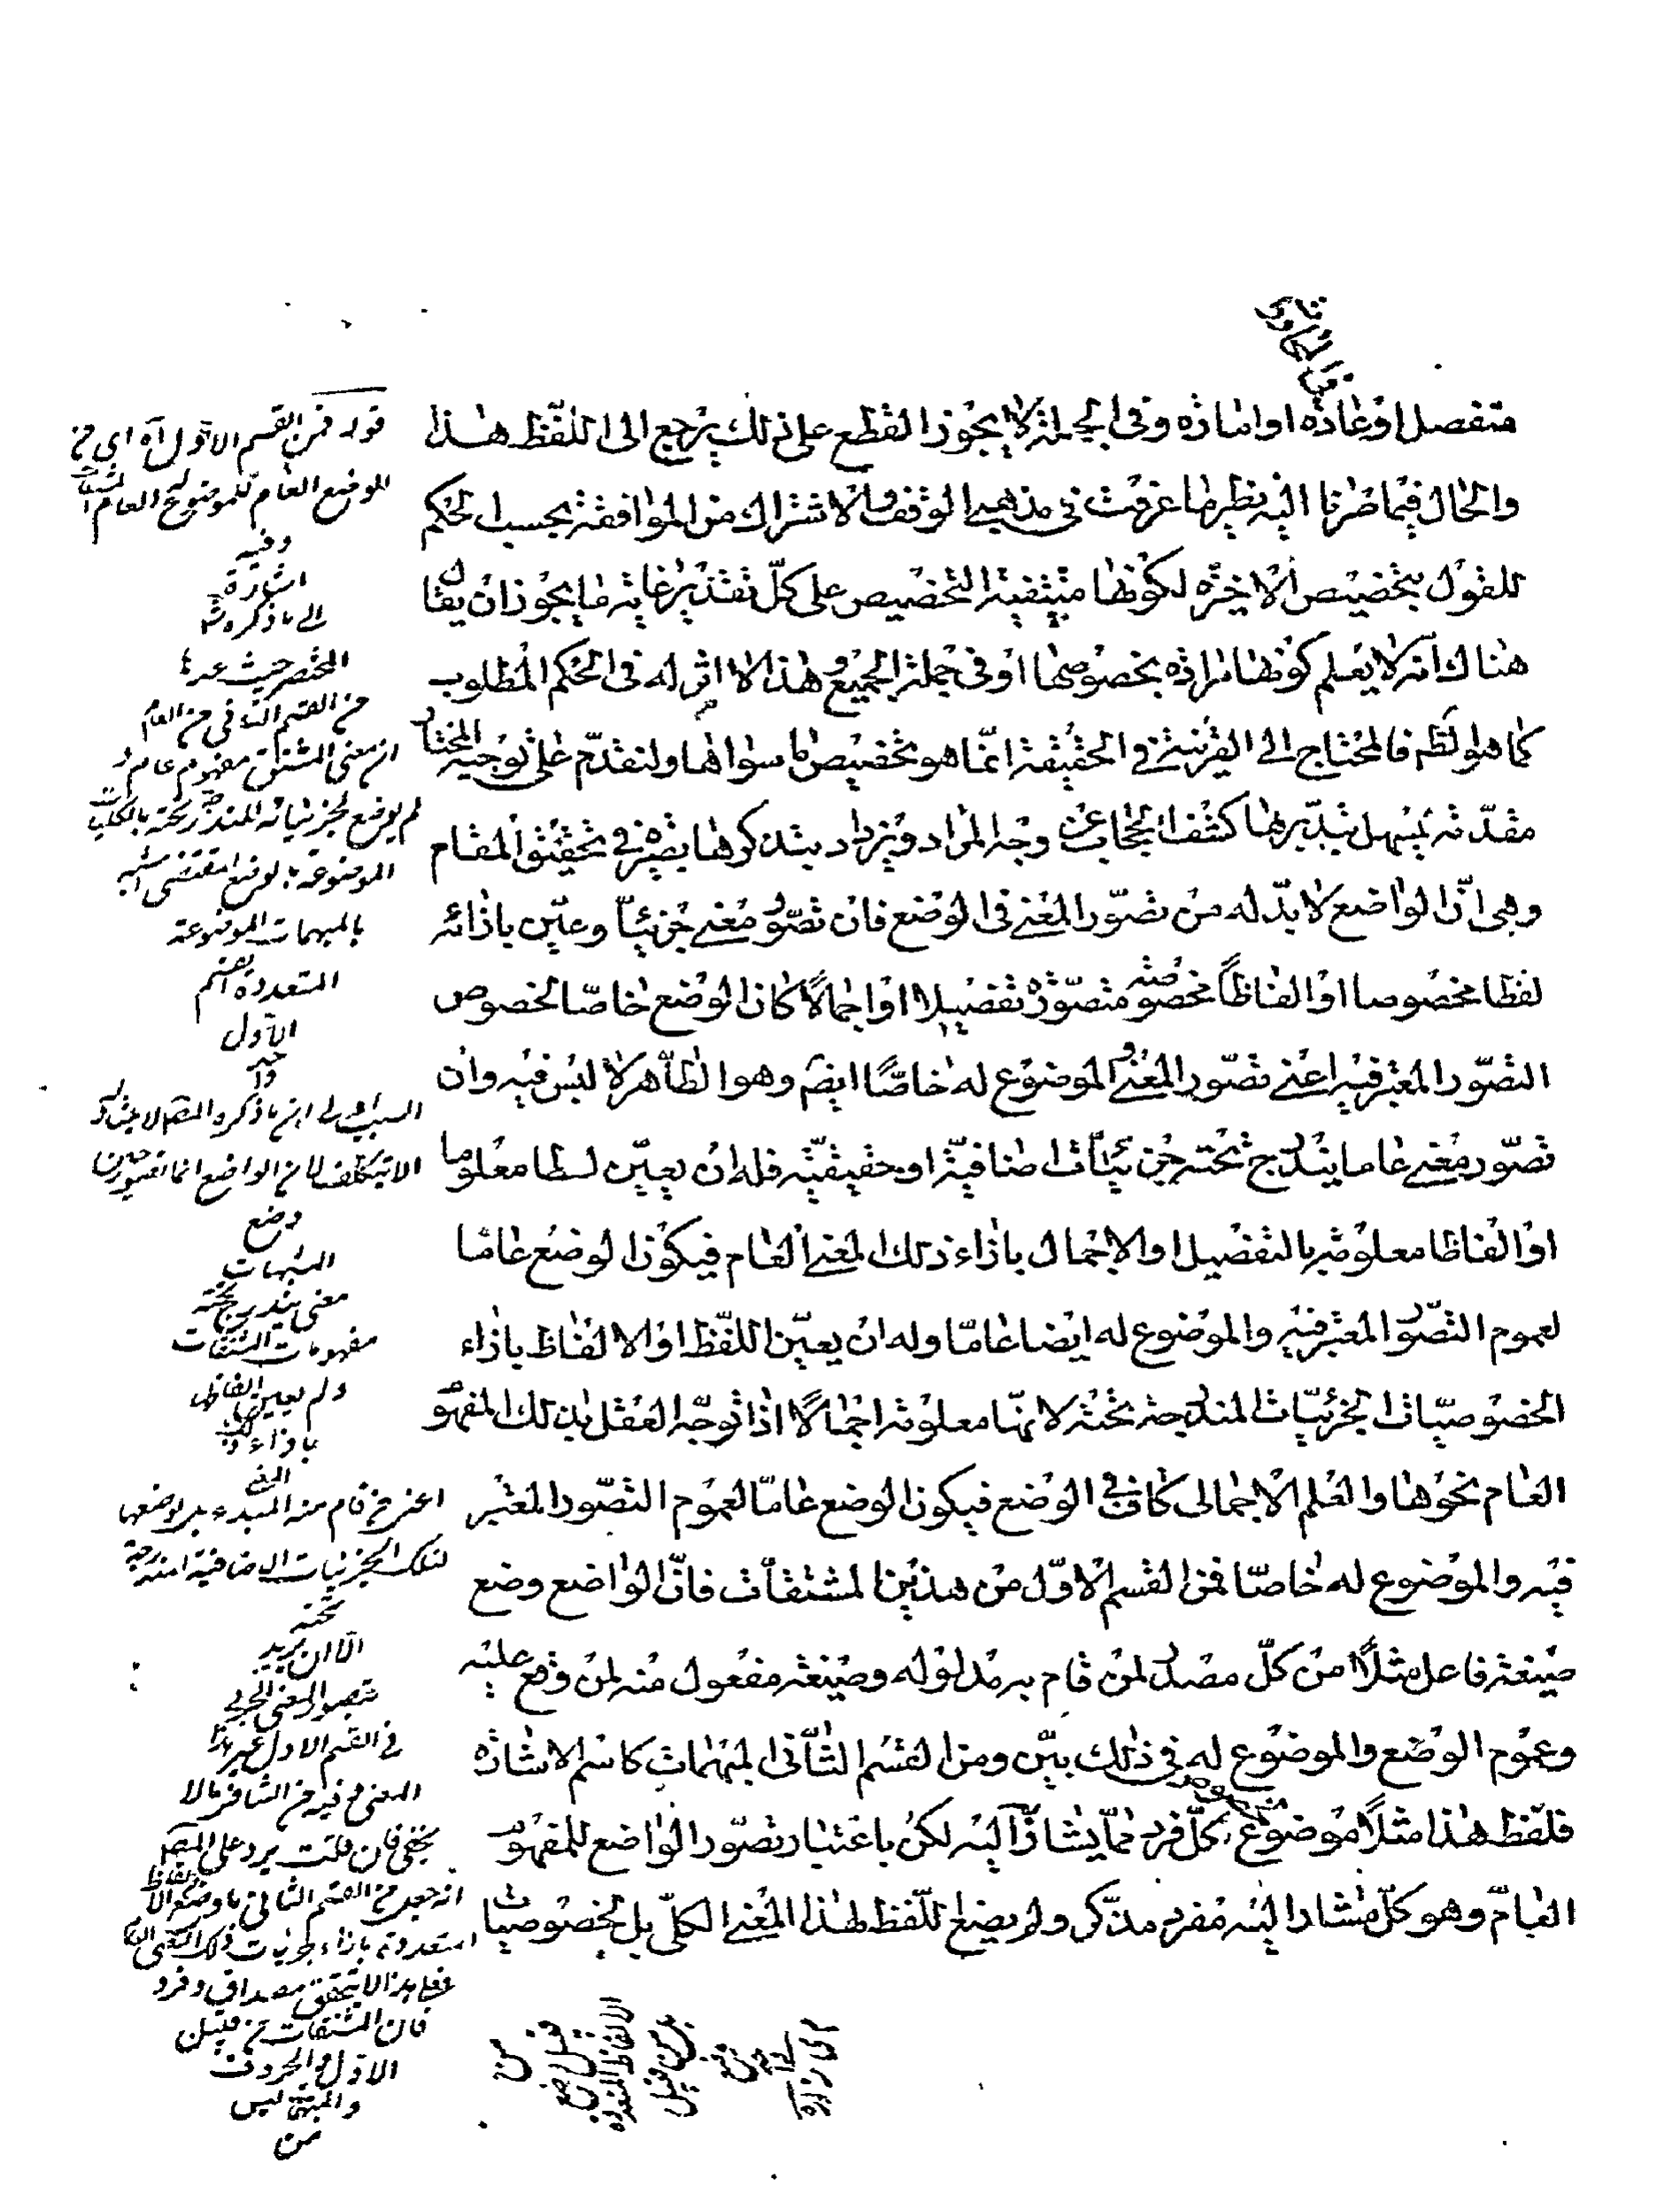 متفصل او عادة او امارة وفى الجملة لا يجوز القطع على ذلك يرجع الى اللفظ هذا
والحال فيما صرنا اليه نظير ما عرفت فى مذهبى الوقف والاشتراك من الموافقة بحسب الحكم
للقول بتخصيص الاخيرة لكونها متيقنة التخصيص على كلّ تقدير غاية ما يجوز ان يقال
هناك انه لا يعلم كونها مرادة بخصوصها او فى جملة الجميع وهذا لا اثر له فى الحكم المطلوب
كما هو ظ فالمحتاج الى القرينة فى الحقيقة انّما هو تخصيص ما سواها ولنقدّم على توجيه المختار
مقدّمة يسهل بتدبّرها كشف الحجاب عن وجه المراد ويزداد بتذكرها بصيرة فى تحقيق المقام
وهى انّ الواضع لا بدّ له من تصوّر المعنى فى الوضع فان تصوّر معنى جزئيّا وعيّن بازائه
لفظا مخصوصا او الفاظاً مخصوصة متصوّرة تفصيلا او اجمالاً كان الوضع خاصّا لخصوص
التصوّر المعتبر فيه اعنى تصوّر المعنى والموضوع له خاصّاً ايضاً وهو الظّاهر لا لبس فيه وان
تصوّر معنى عاما يندرج تحته جزئيّات اضافيّة او حقيقيّة فله ان يعيّن لفظا معلوما
او الفاظا معلومة بالتفصيل او الاجمال بازاء ذلك المعنى العام فيكون الوضع عامّا
لعموم التصوّر المعتبر فيه والموضوع له ايضا عامّا وله ان يعيّن اللفّظ او الالفاظ بازاء
الخصوصيّات الجزئيّات المندرجة تحته لانّها معلومة اجمالاً اذا توجّه العقل بذلك المفهوم
العام نحوها والعلم الاجمالى كاف فى الوضع فيكون الوضع عامّا لعموم التصّور المعتبر
فيه والموضوع له خاصّا فمن القسم الاوّل من هذين المشتقّات فانّ الواضع وضع
صيغة فاعل مثلاً من كلّ مصدر لمن قام به مدلوله وصيغة مفعول منه لمن وقع عليه
وعموم الوضع والموضوع له فى ذلك بيّن ومن القسم الثّانى المبهمات كاسم الاشارة
فلفّظ هذا مثلاً موضوع لخصوص كلّ فرد ممّا يشار اليه لكن باعتبار تصوّر الواضع للمفهوم
العامّ وهو كلّ مشار اليه مفرد مذكّر ولم يضع اللّفظ لهذا المعنى الكلّى بل لخصوصيّات
قوله فمن القسم الاوّل اه اى من
الوضع العام للموضوع له العام
وفيه
اشارة
الى ما ذكره
المختصر حيث عده
من القسم الثانى من العام
ان معنى المشتق مفهوم عام
لم يوضع لجزئياته المندرجة تحته
بالمبهمات الموضوعة
المتعددة
الاول
وضع
المشبهات
معنى يندرج تحته
مفهومات المشتقات
ولم يعين الفاظها
بازاء ذلك
المعنى
اعنى من قام منه المبدء بل وضعها
لتلك الجزئيات الاضافية المندرجة
تحته
الا ان يريد
بتصور المعنى الجزئى
فى القسم الاول غير هذا
المعنى وفيه من التنافر ما لا
يخفى فان قلت يرد على المصـ
انه جعل من القسم الثانى ما وضع الالفاظ
المتعددة بازاء جزئيات ذلك المعنى
فعلى هذا لا يتحقق مصداق وفرد
فان المشتقات من قبيل
الاول والحروف
والمبهم ليس
من